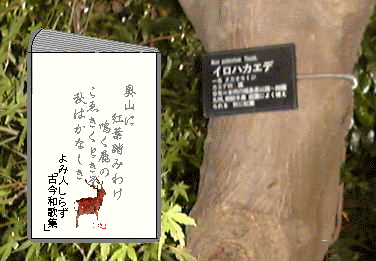 奥山に
紅葉踏みわけ
鳴く鹿の
こゑきくときぞ
秋はかなしき
よみ人しらず
「古今和歌集」
Acer palmatum Thunb.
イロハカエデ